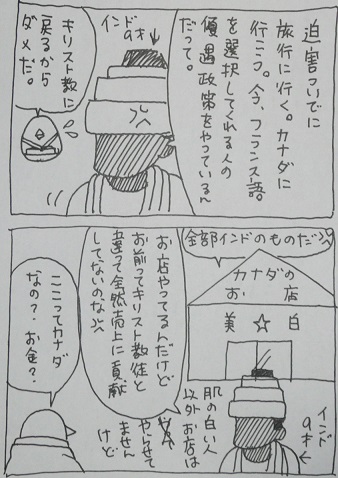 迫害ついでに
旅行に行く。カナダに
行こう。今、フランス語。
を選択してくれる人の
優遇政策をやっているん
だって。
インド
9才↓
キリスト教に
戻るから
ダメだ。
全部インドのものだ
カナダの
お店
美☆白
インド
9才
←
肌の白い人
以外お店は
やらせて
ません
けど
お店やってるんだけど
お前ってキリスト教徒と
違って全然売上に貢献
してないのな
ここってカナダ
なの?お金?